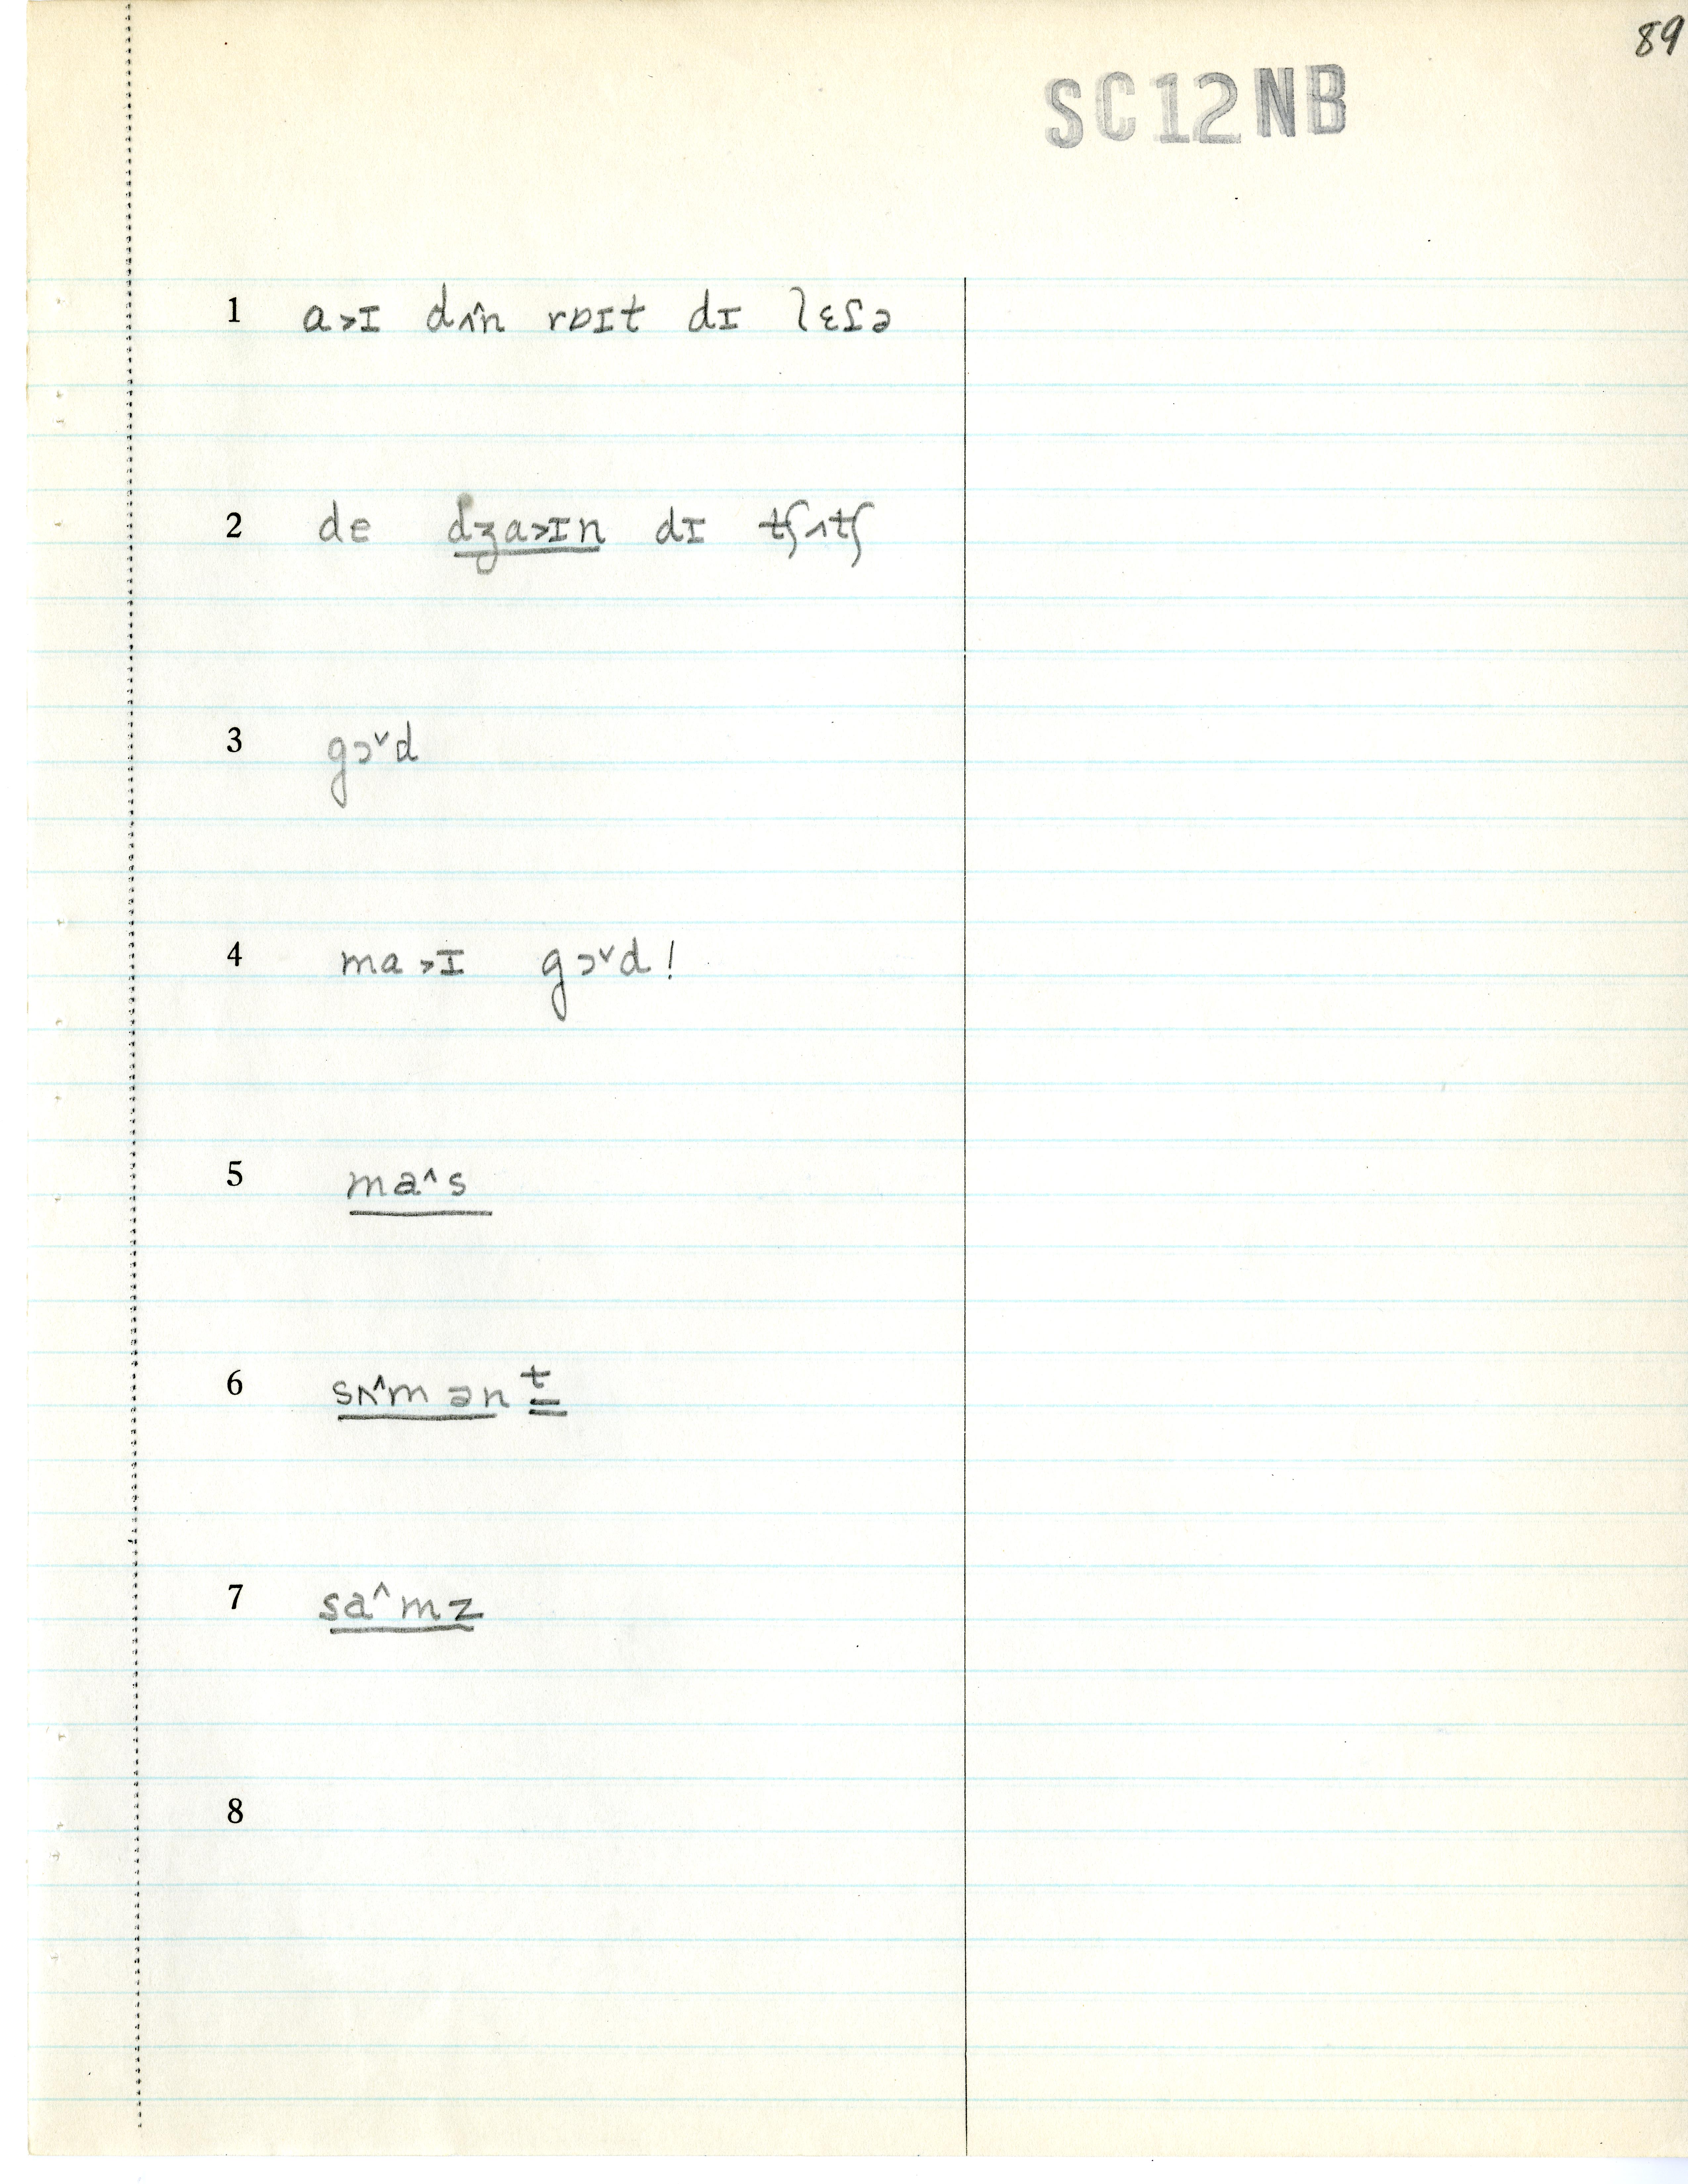 89
SC12NB
1 a˃ɪ dʌ̂n rɒɪt dɪ lɛɾə
2 de dʒa˃ɪn dɪ tʃʌtʃ
3 gɔ˅d
4 ma˃ɪ gɔ˅d!
5 ma˄s
6 sʌ˄mən t
7 sa˄mz
8